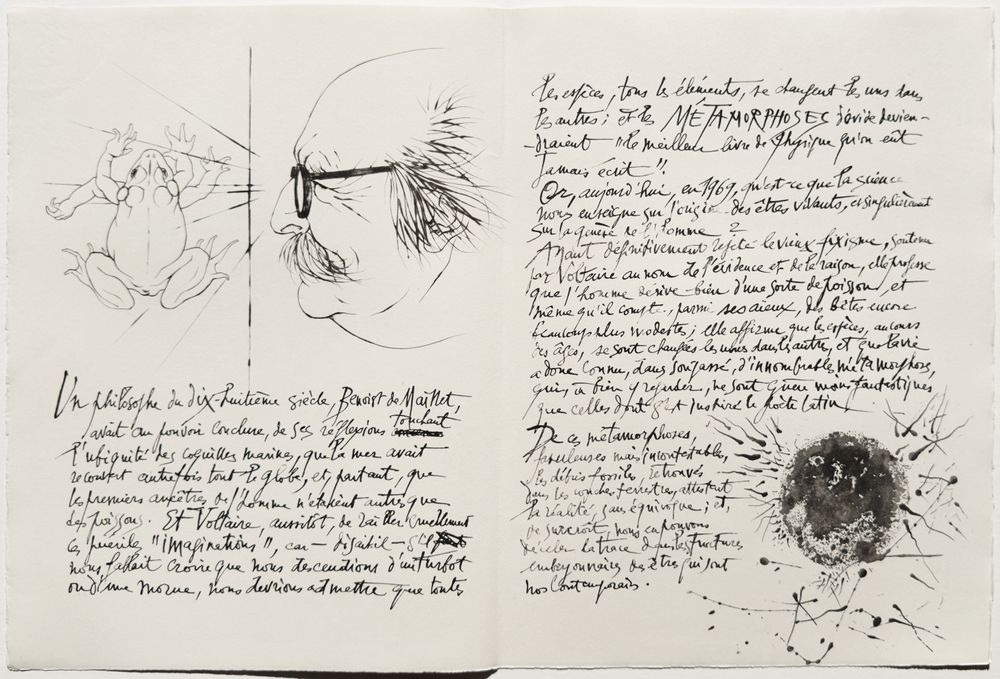 Un philosophe du dix-huitième siècle, Benoist de Maillet,
avait cru pouvoir conclure, de ses réflexions touchant
l'ubiquité des coquilles marines, que la mer avait
recouvert autrefois tout le globe, et, partant, que
les premiers ancêtres de l'homme n'étaient autres que
des poissons. Et Voltaire, aussitôt, de railler cruellement
ces puériles "imaginations", car - disait-il - s'il
nous fallait croire que nous descendions d'un turbot
ou d'une morue, nous devrions admettre que toutes
les espèces, tous les éléments, se changent les uns dans
les autres ; et les MÉTAMORPHOSES d'Ovide devien-
-draient "le meilleur livre de Physique qu'on eût
jamais écrit".
Or, aujourd'hui, en 1969, qu'est-ce que la science
nous enseigne sur l'origine des êtres vivants, et singulièrement
sur la genèse de l'homme ?
Ayant définitivement rejeté le vieux fixisme, soutenu
par Voltaire au nom de l'évidence et de la raison, elle professe
que l'homme dérive bien d'une sorte de poisson, et
même qu'il compte, parmi ses aïeux, des bêtes encore
beaucoup plus modestes ; elle affirme que les espèces, au cours
des âges, se sont changées les unes dans les autres, et que la vie
a donc connu, dans son passé, d'innombrables métamorphoses,
qui, à bien y regarder, ne sont guère moins fantastiques
que celles dont s'est inspiré le poète latin.
De ces métamorphoses,
fabuleuses mais incontestables,
les débris fossiles, retrouvés
dans les couches terrestres, attestent
la réalité, sans équivoque ; et,
de surcroît, nous en pouvons
déceler la trace dans les structures
embryonnaires des êtres qui sont
nos contemporains.